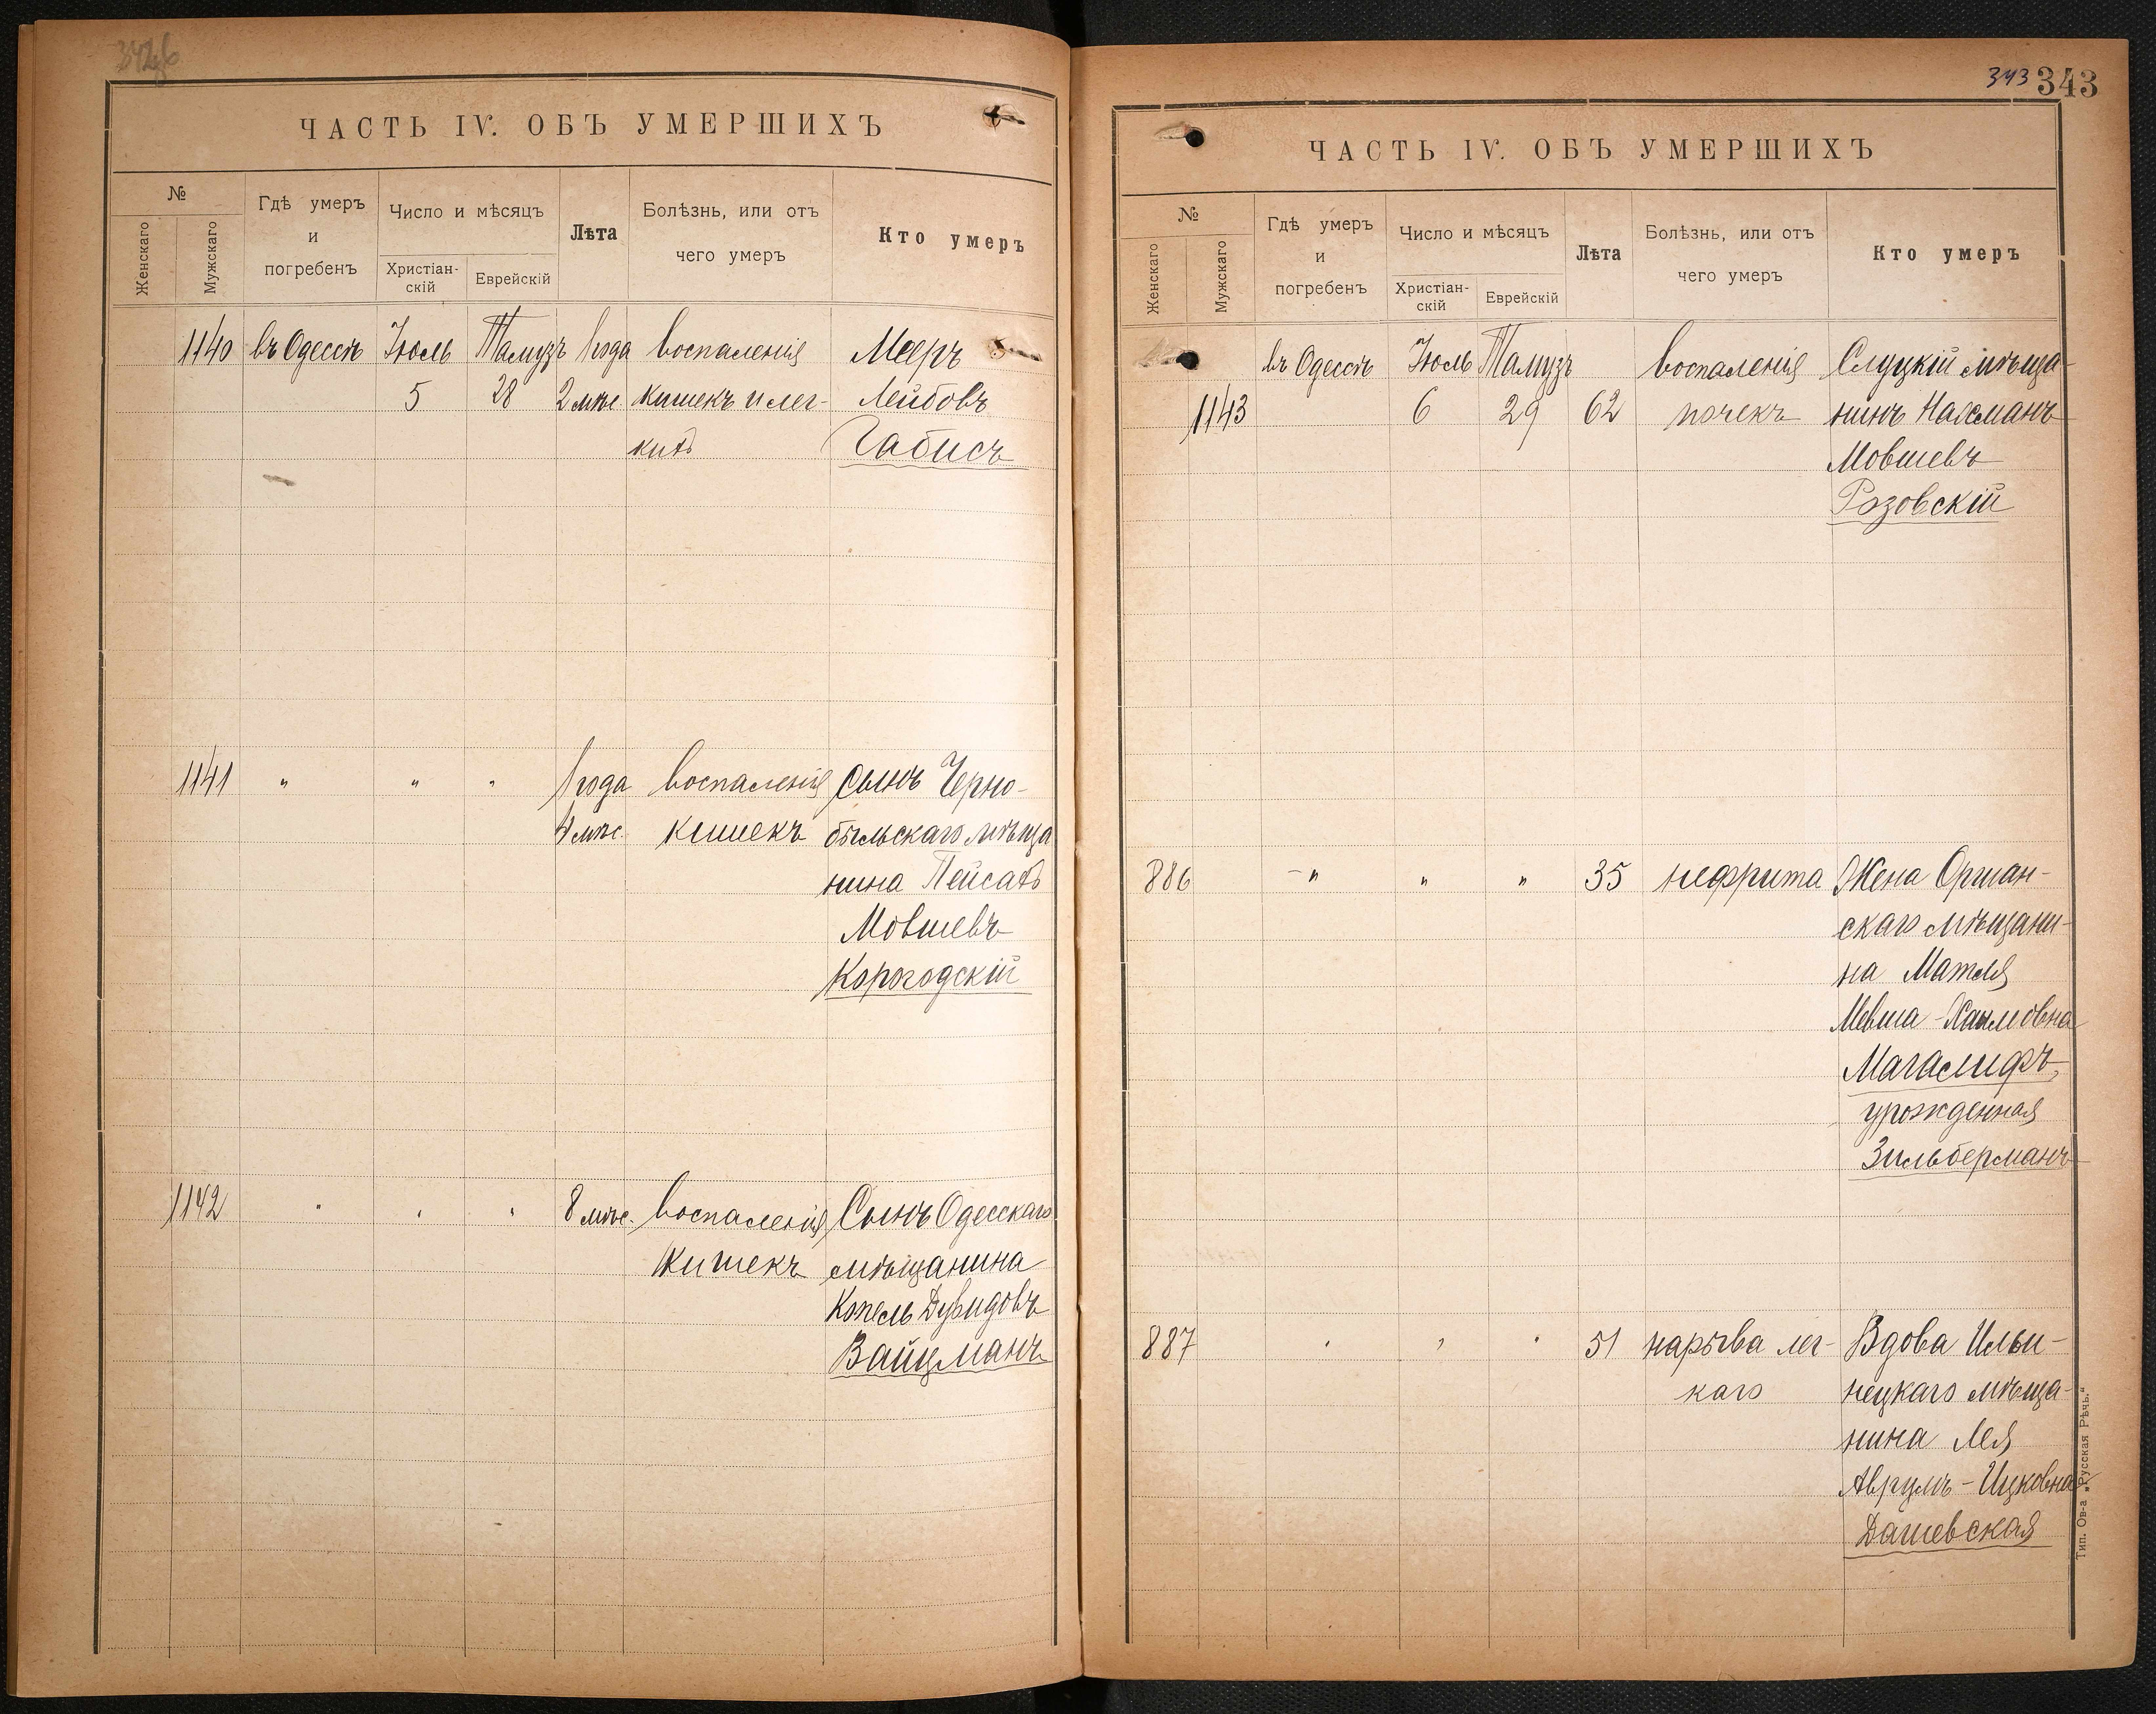 342об
ЧАСТЬ IV. ОБЪ УМЕРШИХЪ
№
Женскаго
Мужскаго
Гдѣ умеръ
и
погребенъ
Число и мѣсяцъ
Христіан-
скій
Еврейскій
Лѣта
Болѣзнь, или отъ
чего умеръ
Кто умеръ
1140 въ Одессѣ Іюль Тамузъ 1 года воспаленія Мееръ
5 28 2 мѣс. кишекъ и лег- Лейбовъ
кихъ Габисъ
1141 " " " 1 года воспаленія Сынъ Черно-
4 мѣс. кишекъ быльскаго мѣща
нина Пейсахъ
Мовшевъ
Корогодскій
1142 " " " 8 мѣс. воспаленія Сынъ Одесскаго
кишекъ мѣщанина
Копель Дувидовъ
Вайцманъ
343 343
ЧАСТЬ IV. ОБЪ УМЕРШИХЪ
№
Женскаго
Мужскаго
Гдѣ умеръ
и
погребенъ
Число и мѣсяцъ
Христіан-
скій
Еврейскій
Лѣта
Болѣзнь, или отъ
чего умеръ
Кто умеръ
въ Одессѣ Іюль Тамузъ воспаленія Слуцкій мѣща-
1143 6 29 62 почекъ нинъ Нахманъ
Мовшевъ
Розовскій
886 " " " 35 нефрита Жена Оршан-
скаго мѣщани-
на Матля
Мевша-Хаимовна
Магалифъ,
урожденная
Зильберманъ
887 " " " 51 нарыва лег- Вдова Ильи-
каго нецкаго мѣща-
нина Лея
Аврумъ-Ицковна
Дашевская
Тип. Ов-а „Русская Рѣчь.“